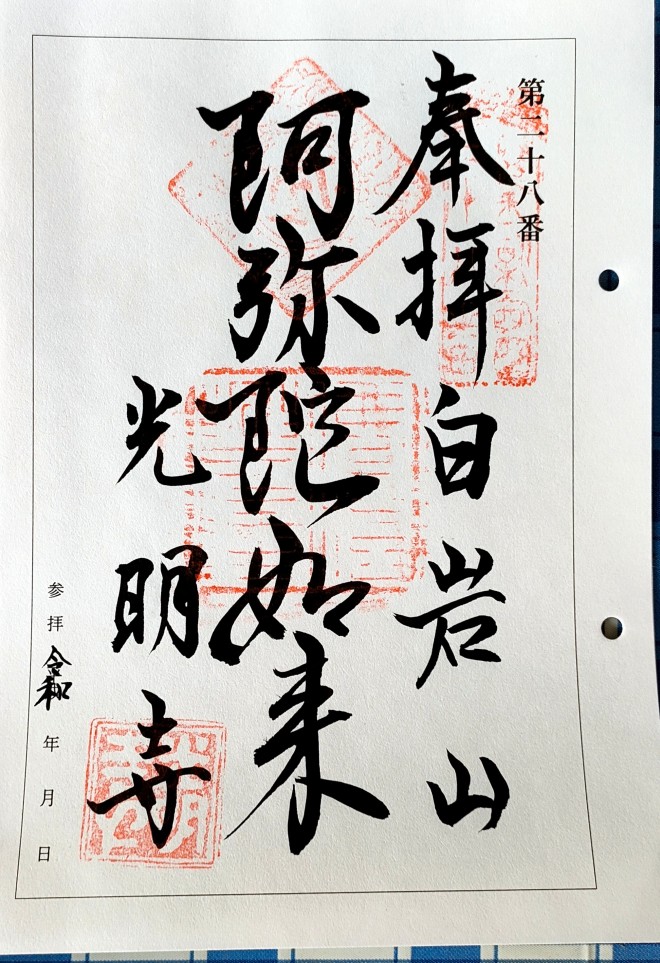 第二十八番
奉拝 白岩山
阿弥陀如来
光明寺
参拝 令和 年 月 日